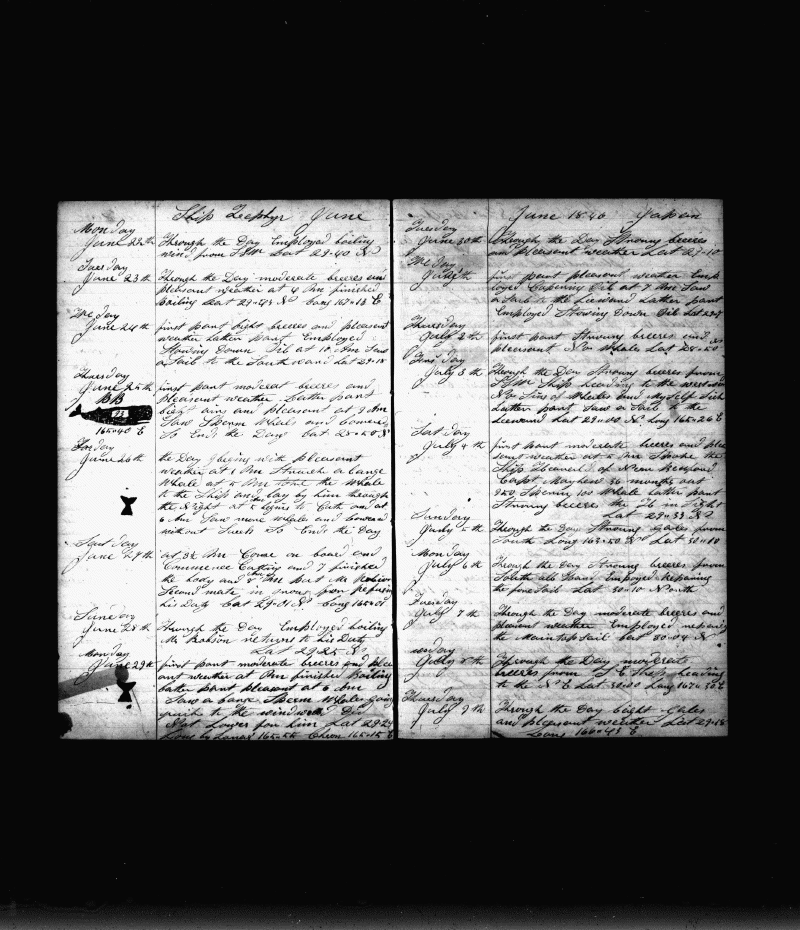 Ship Zephyr June
Monday
June 22th Through the Day Employed boiling
wind from SSW Lat 29-40 N
Tuesday
June 23th Through the Day moderate breezes and
pleasant weather at 4 Am finished
boiling Lat 29-43 N Long 167-13 E
Wedday
June 24th first part light breezes and pleasant
weather Latter part Employed
Stowing Down Oil at 10 Am Saw
a Sail to the Southward Lat 29-18
Thursday
June 25th first part moderat breezes and
BB pleasant weather Latter part
light airs and pleasant at 9 Am
Saw Sperm Whal and Lowered
165-40 E So Ends the Day Lat 28-50 N
Friday
June 26th the Day begins with pleasant
weather at 1 Pm Struck a Large
Whale at 5 Pm took the Whale
to the Ship and lay by him through
the Night at begins to Cutt and at
6 Am Saw more whales and Lowered
without Luck So Ends the Day
Saturday
June 27th at Pm Come on board and
Commence Cutting and 7 finished
the body and 8 Pm But Mr Robson
Second mate in from refusing
his Duty Lat 29-01 N Long 165-05
Sunday
June 28th through the Day Employed boiling
Mr Robson returns to his Duty
Lat 29-25 N
Monday
June 29th first part moderate breezes and plea
ant weather at Pm finished Boiling
latter part pleasant at 6 Am
Saw a large Sperm Whale going
quick to the windward Did
Not Lower for him Lat 29-29
Long by Lunar 165-55 Chron 165-15 E
June 1840 Japan
Tuesday
June 30th Through the Day Strong breezes
and pleasant weather Lat 29-10
Wedday
July 1th first part pleasant weather Emp
loyed Coopering Oil at 7 Am Saw
a Sail to the Leeward Latter part
Employed Stowing Down Oil Lat 29-
Thursday
July 2th first part Strong breezes and
pleasant No Whales Lat 28-50 N
Friday
July 3th Through the Day Strong breezes from
SSW Ship heading to the west
No Sins of Whales and Myself Sick
Latter part Saw a Sail to the
Leeward Lat 29-00 N Long 165-26 E
Satday
July 4th first part moderate breezes and plea
sant weather at 5 Pm Spoke the
Ship of New Bedford
Capt Mayhew 30 months out
950 Sperm 100 Whale Latter part
Strong breezes the in Sight
Lat 29-33 N
Sunday
July 5th Through the Day Strong gales from
South Long 163-50 Lat 30-10
Monday
July 6th Through the Day Strong breezes from
South all Hand Employed Repairing
the fore Sail Lat 30-10 North
Tuesday
July 7th Through the Day moderate breezes and
pleasant weather Employed repairing
the Maintop Sail Lat 30-04 N
wedday
July 8th Through the Day moderate
breezes from S E Ship heading
to the N E Lat 30-00 Long 167-30 E
Thursday
July 9th Through the Day Light Gales
and pleasant weather Lat 29-18
Long 166-43 E